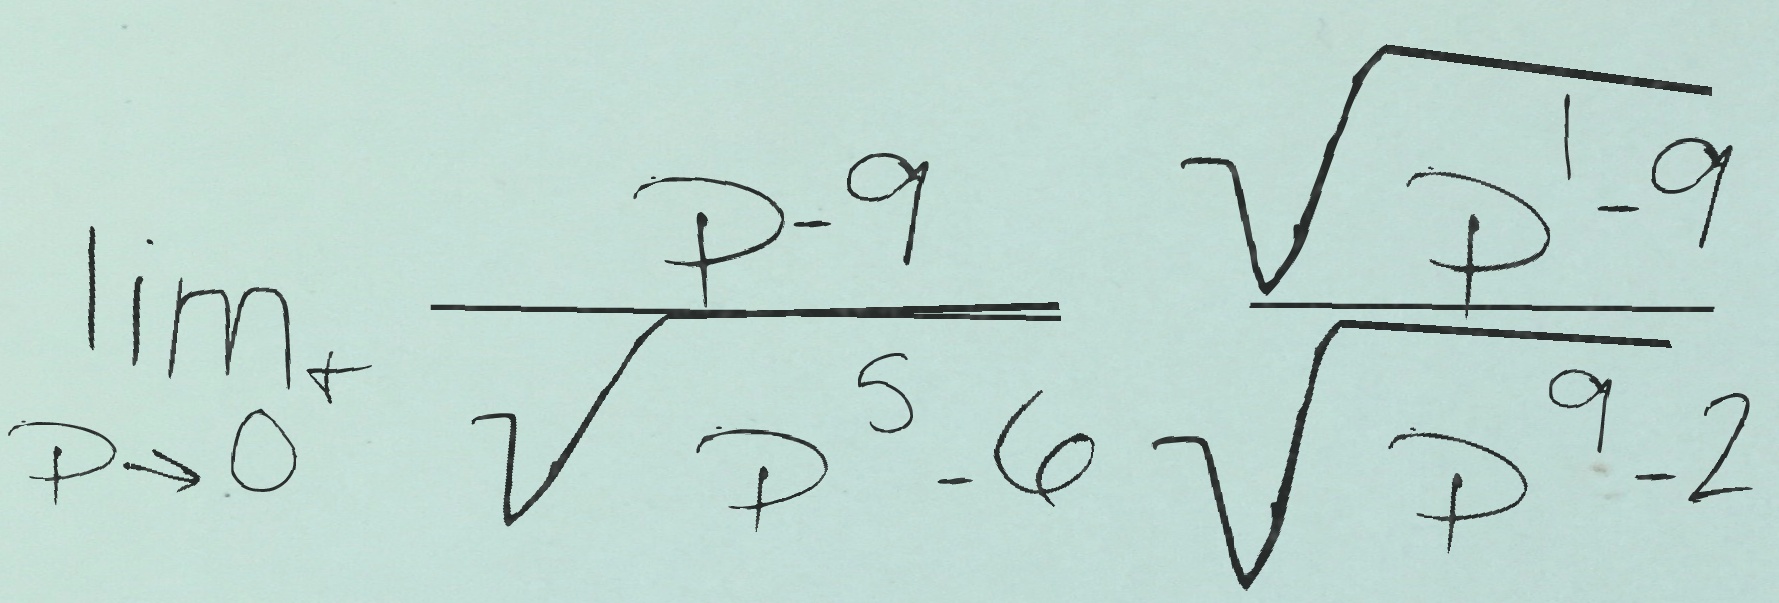 \lim_{p \to 0^+} \frac{p-9}{\sqrt{p^5-6}} \frac{\sqrt{p^1-9}}{\sqrt{p^9-2}}